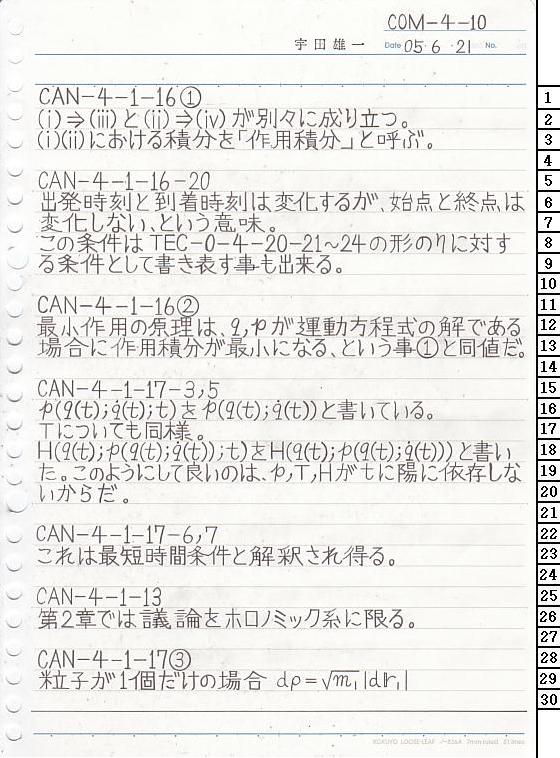 COM-4-10
宇田雄一 Date 05・6・21 No.
CAN-4-1-16①
(i)⇒(iii)と(ii)⇒(iv)が別々に成り立つ。
(i)(ii)における積分を「作用積分」と呼ぶ。
CAN-4-1-16-20
出発時刻と到着時刻は変化するが、始点と終点は
変化しない、という意味。
この条件はTEC-0-4-20-21~24の形のηに対す
る条件として書き表す事も出来る。
CAN-4-1-16②
最小作用の原理は、q,pが運動方程式の解である
場合に作用積分が最小になる、という事①と同値だ。
CAN-4-1-17-3,5
p(q(t);q̇(t);t)をp(q(t);q̇(t))と書いている。
Tについても同様。
H(q(t);p(q(t);q̇(t));t)をH(q(t);p(q(t);q̇(t)))と書い
た。このようにして良いのは、p,T,Hがtに陽に依存しな
いからだ。
CAN-4-1-17-6,7
これは最短時間条件と解釈され得る。
CAN-4-1-13
第2章では議論をホロノミック系に限る。
CAN-4-1-17③
粒子が1個だけの場合 dρ=√m₁|dr₁|
KOKUYO LOOSE-LEAF ノ-836A 7mm ruled 31 lines
1
2
3
4
5
6
7
8
9
10
11
12
13
14
15
16
17
18
19
20
21
22
23
24
25
26
27
28
29
30